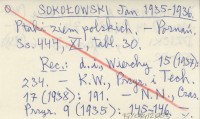 SOKOŁOWSKI Jan 1935-1936.
Ptaki ziem polskich. — Poznań.
Ss. 444, XI, tabl. 30.
Rec.: d.d., Wierchy 15 (1937):
234. — K.W., Przyr. i Tech.
17 (1938): 191. — J. N., Czas.
Przyr. 9 (1935): 145-146.